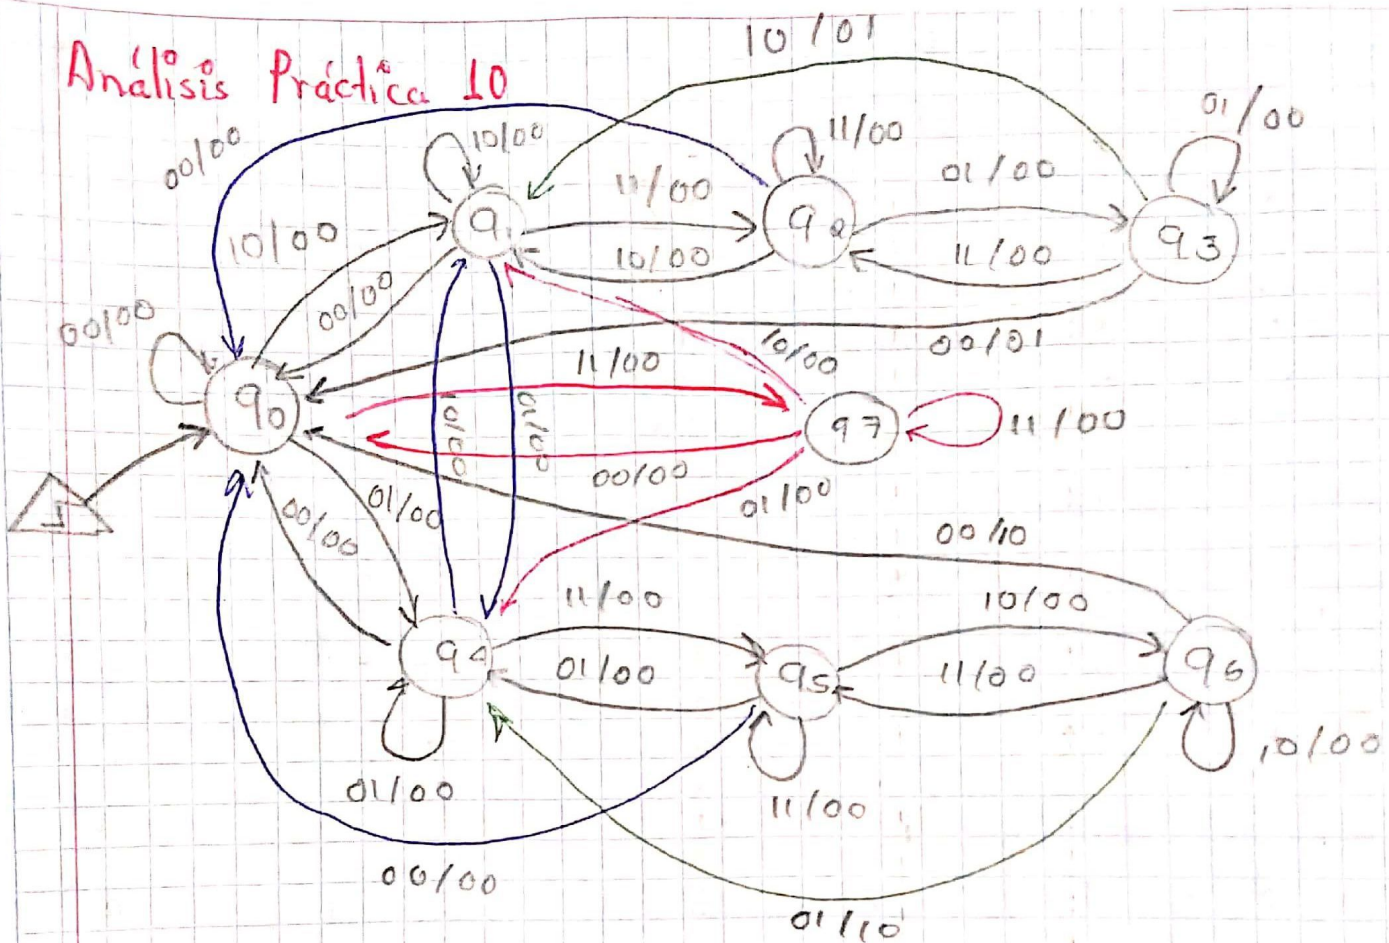 Análisis Práctica 10
10/01
00/00
10/00
11/00
01/00
01/00
q1
11/00
q2
q3
10/00
10/00
11/00
00/00
00/00
00/01
10/00
11/00
q0
q7
11/00
00/00
01/00
01/00
00/00
00/10
11/00
10/00
q4
01/00
q5
11/00
q6
01/00
11/00
10/00
00/00
01/10